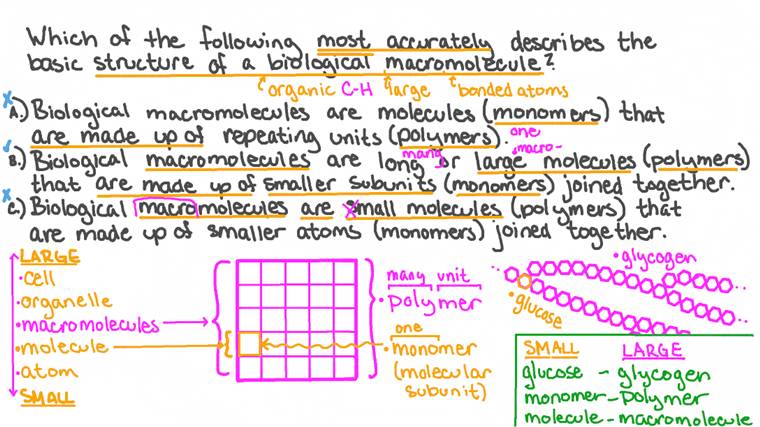 Which of the following most accurately describes the
basic structure of a biological macromolecule?
organic C-H large bonded atoms
A.) Biological macromolecules are molecules (monomers) that
are made up of repeating units (polymers).
one
many macro-
B.) Biological macromolecules are long or large molecules (polymers)
that are made up of smaller subunits (monomers) joined together.
C.) Biological macromolecules are small molecules (polymers) that
are made up of smaller atoms (monomers) joined together.
LARGE
• cell
• organelle
• macromolecules
• molecule
• atom
SMALL
many unit
• polymer
one
• monomer
(molecular
subunit)
• glycogen
• glucose
SMALL LARGE
glucose - glycogen
monomer - polymer
molecule - macromolecule